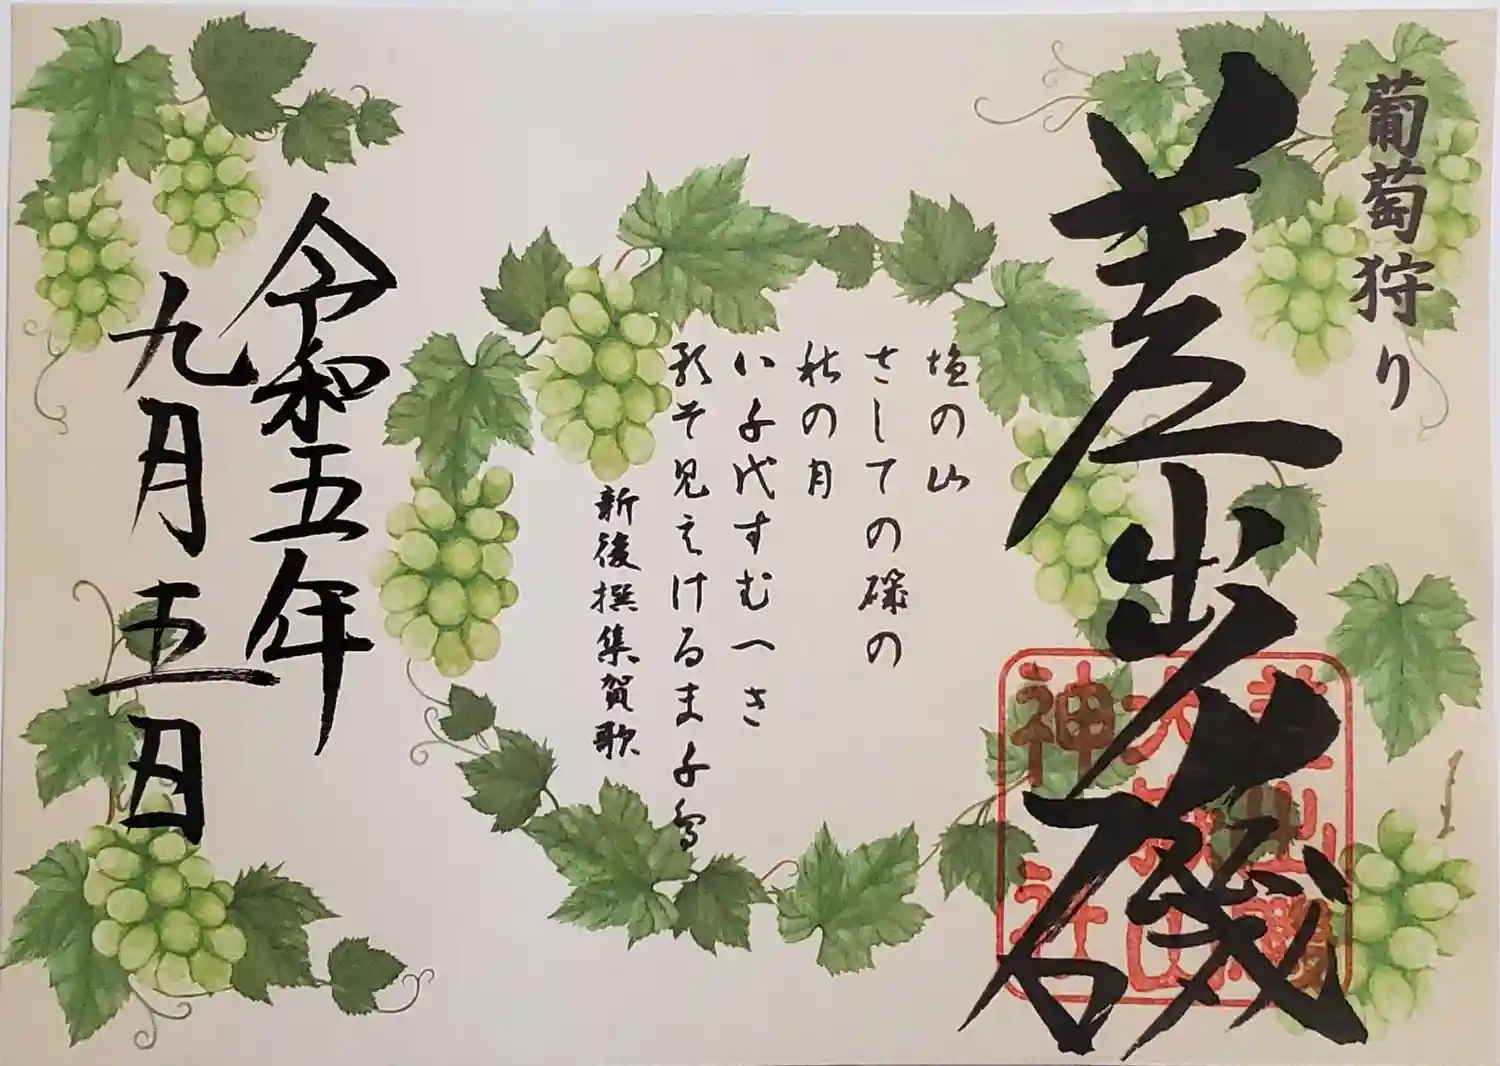 葡萄狩り
差出磯
差出磯
大嶽山
神社
塩の山
さしての磯の
秋の月
八千代すむへき
影そ見えけるま千鳥
新後撰集賀歌
令和五年
九月五日